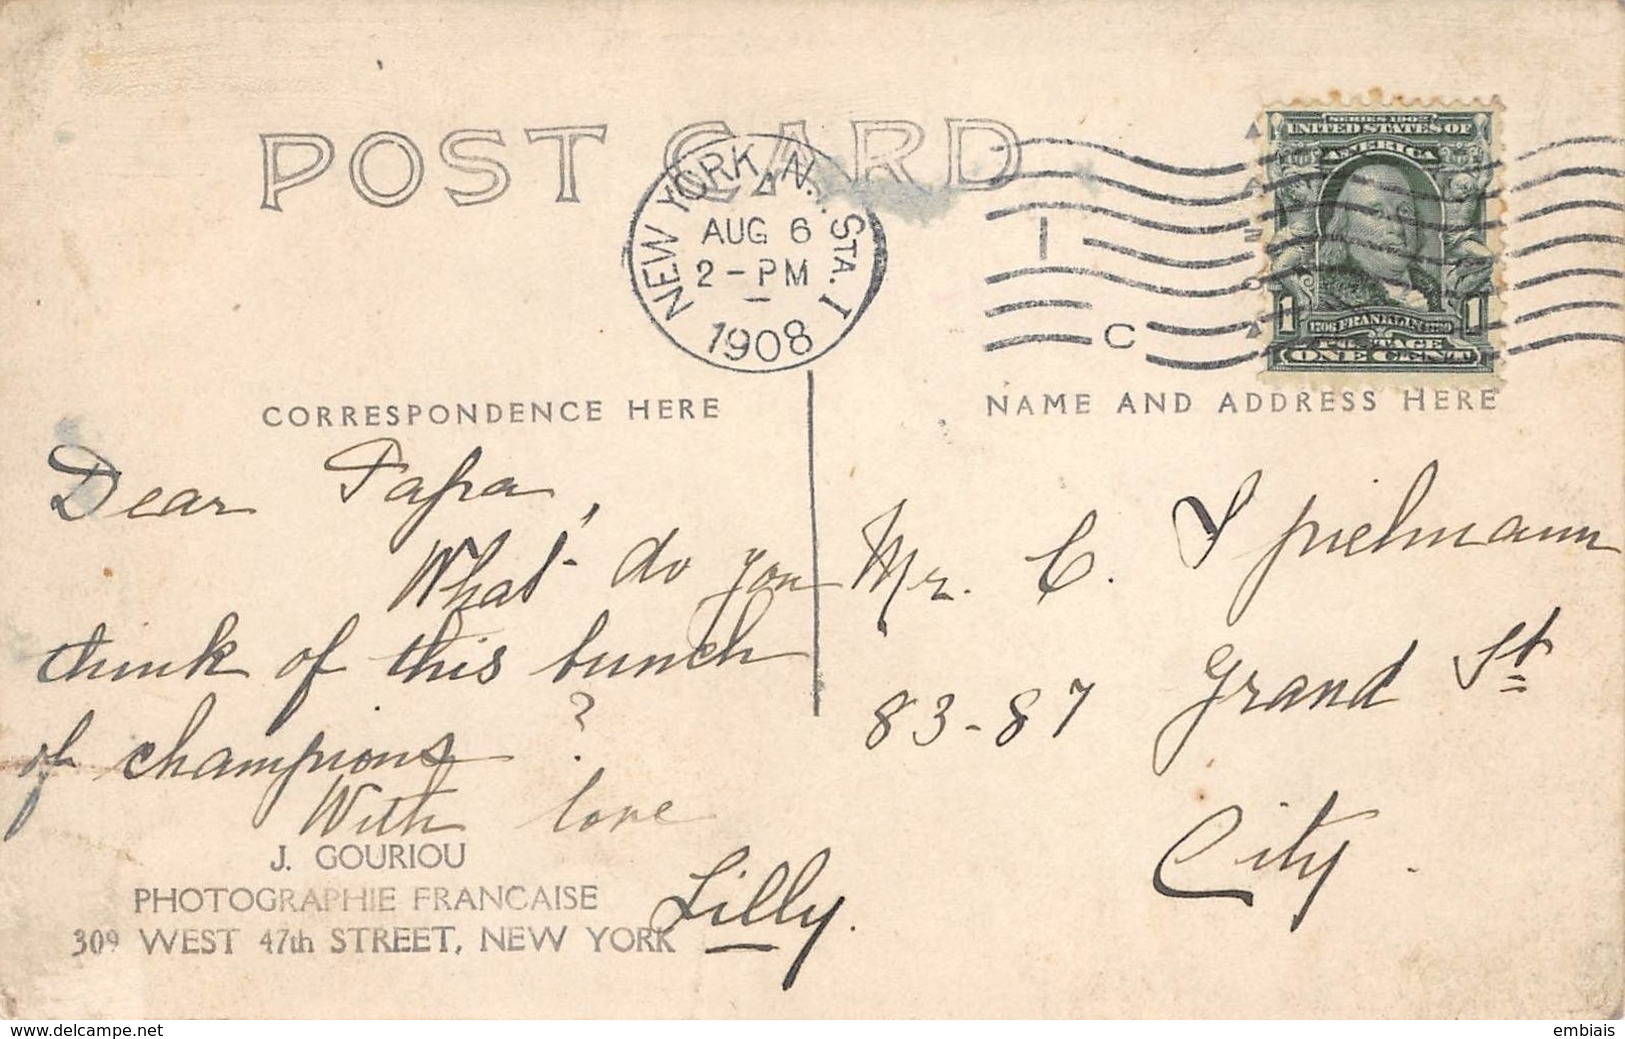 POST CARD
NEW YORK, N.Y. STA. 1
AUG 6
2-PM
1908
1
C
SERIES 1902
UNITED STATES OF
AMERICA
1 1
1706 FRANKLIN 1790
POSTAGE
ONE CENT
CORRESPONDENCE HERE
Dear Papa,
What do you
think of this bunch
of champions?
With love
Lilly.
J. GOURIOU
PHOTOGRAPHIE FRANCAISE
309 WEST 47th STREET, NEW YORK
NAME AND ADDRESS HERE
Mr. C. Spielmann
83-87 Grand St
City.
www.delcampe.net
embiais